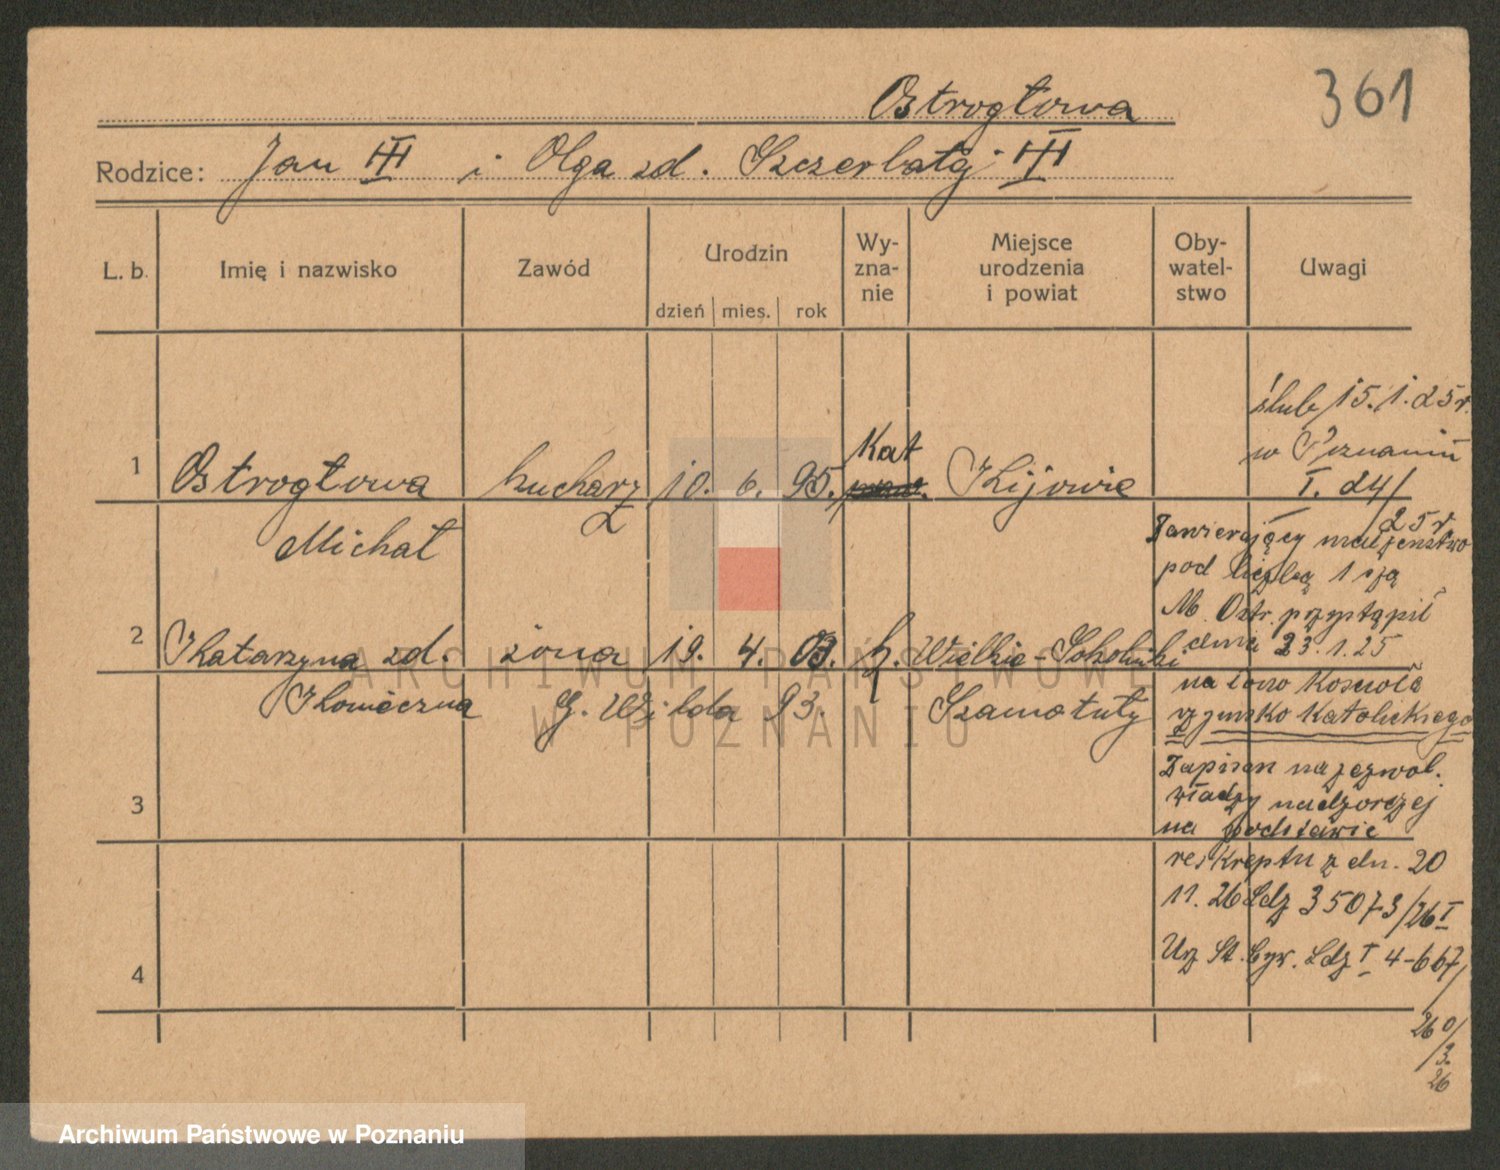 Ostrogłowa
361
Rodzice: Jan i Olga zd. Szczerbatej
L. b.
Imię i nazwisko
Zawód
Urodzin
dzień mies. rok
Wy-
zna-
nie
Miejsce
urodzenia
i powiat
Oby-
watel-
stwo
Uwagi
1
Ostrogłowa
Michał
kucharz
10. 6. 95.
Kat
Kijowie
ślub 15.1.25r.
w Poznaniu
I. 24/
25r
2
Katarzyna zd.
Konieczna
żona
G. Wilda
19. 4. 03.
93.
k.
Wielkie-Sokolniki
Szamotuły
Zawierający małżeństwo
pod liczbą 1 sją
M. Ostr. przystąpił
dnia 23.1.25
na łono Kościoła
rzymsko katolickiego
Zapisan na zezwol.
władzy nadzorczej
na podstawie
reskryptu z dn. 20
11. 26 Ldz 35073/26 I
Urz St. Cyw. Ldz I 4-667/
260/
3.
26
3
4
ARCHIWUM PAŃSTWOWE
W POZNANIU
Archiwum Państwowe w Poznaniu